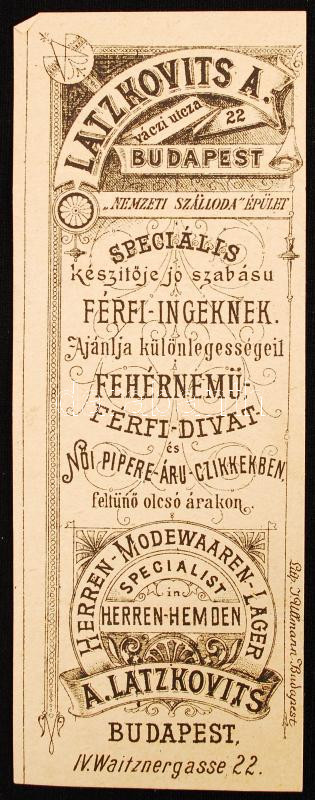 LATZKOVITS A.
váczi utcza 22
BUDAPEST
„NEMZETI SZÁLLODA" ÉPÜLET
SPECIÁLIS
készitője jó szabásu
FÉRFI-INGEKNEK.
Ajánlja különlegességeit
FEHÉRNEMÜ-
FÉRFI-DIVAT
és
NŐI PIPERE-ÁRU-CZIKKEKBEN,
feltünő olcsó árakon.
HERREN-MODEWAAREN-LAGER
SPECIALIST
in
HERREN-HEMDEN
A. LATZKOVITS
BUDAPEST,
IV. Waitznergasse 22.
Budapest